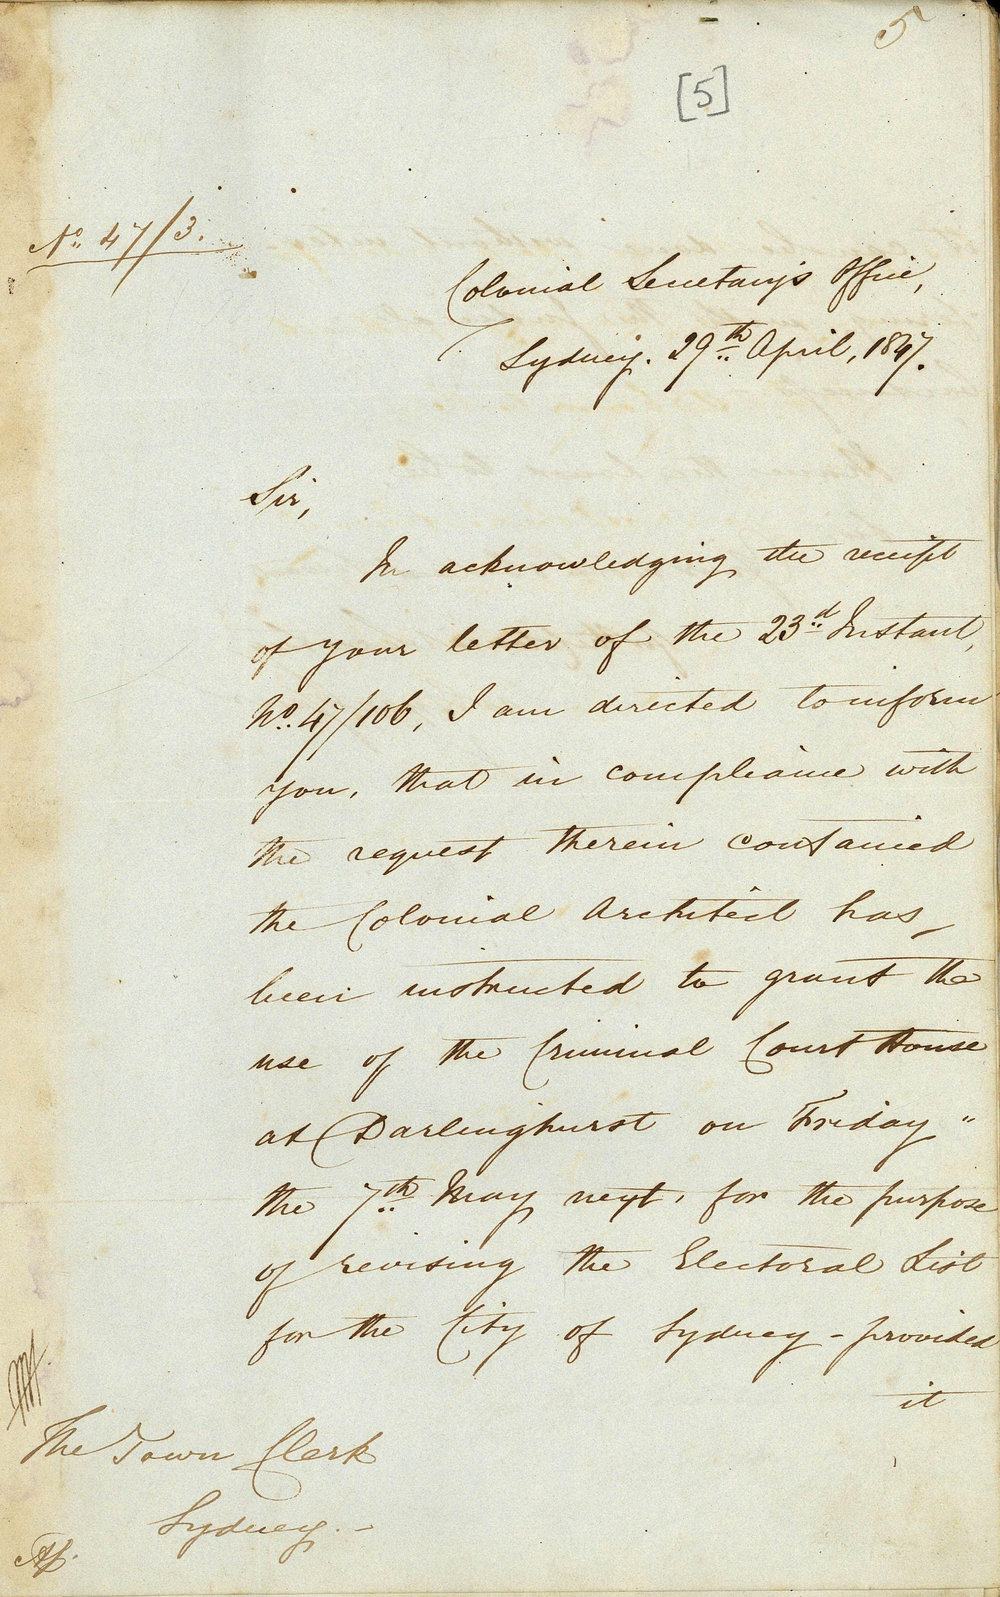 5
[5]
No. 47/3.
Colonial Secretary's Office,
Sydney. 29th April, 1847.
Sir,
In acknowledging the receipt
of your letter of the 23d Instant,
No. 47/106, I am directed to inform
you, that in compliance with
the request therein contained
the Colonial Architect has
been instructed to grant the
use of the Criminal Court House
at Darlinghurst on Friday "
the 7th May next, for the purpose
of revising the Electoral List
for the City of Sydney - provided
it
The Town Clerk
Sydney. -